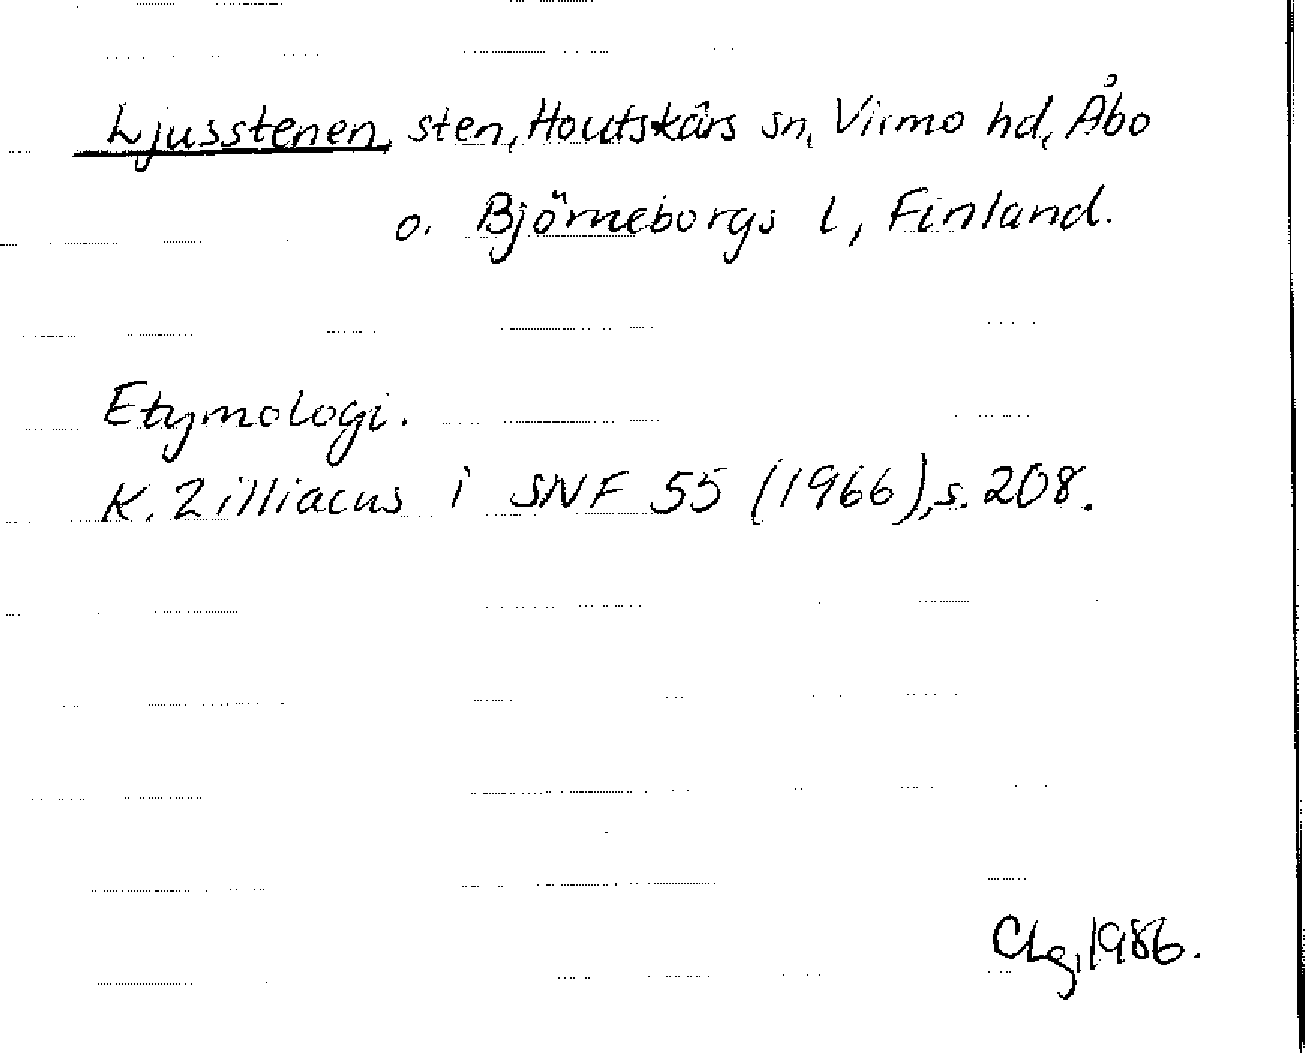 Ljusstenen, sten, Houtskärs sn, Virmo hd, Åbo
o. Björneborgs l, Finland.
Etymologi.
K. Zilliacus i SNF 55 (1966), s. 208.
Chg, 1986.